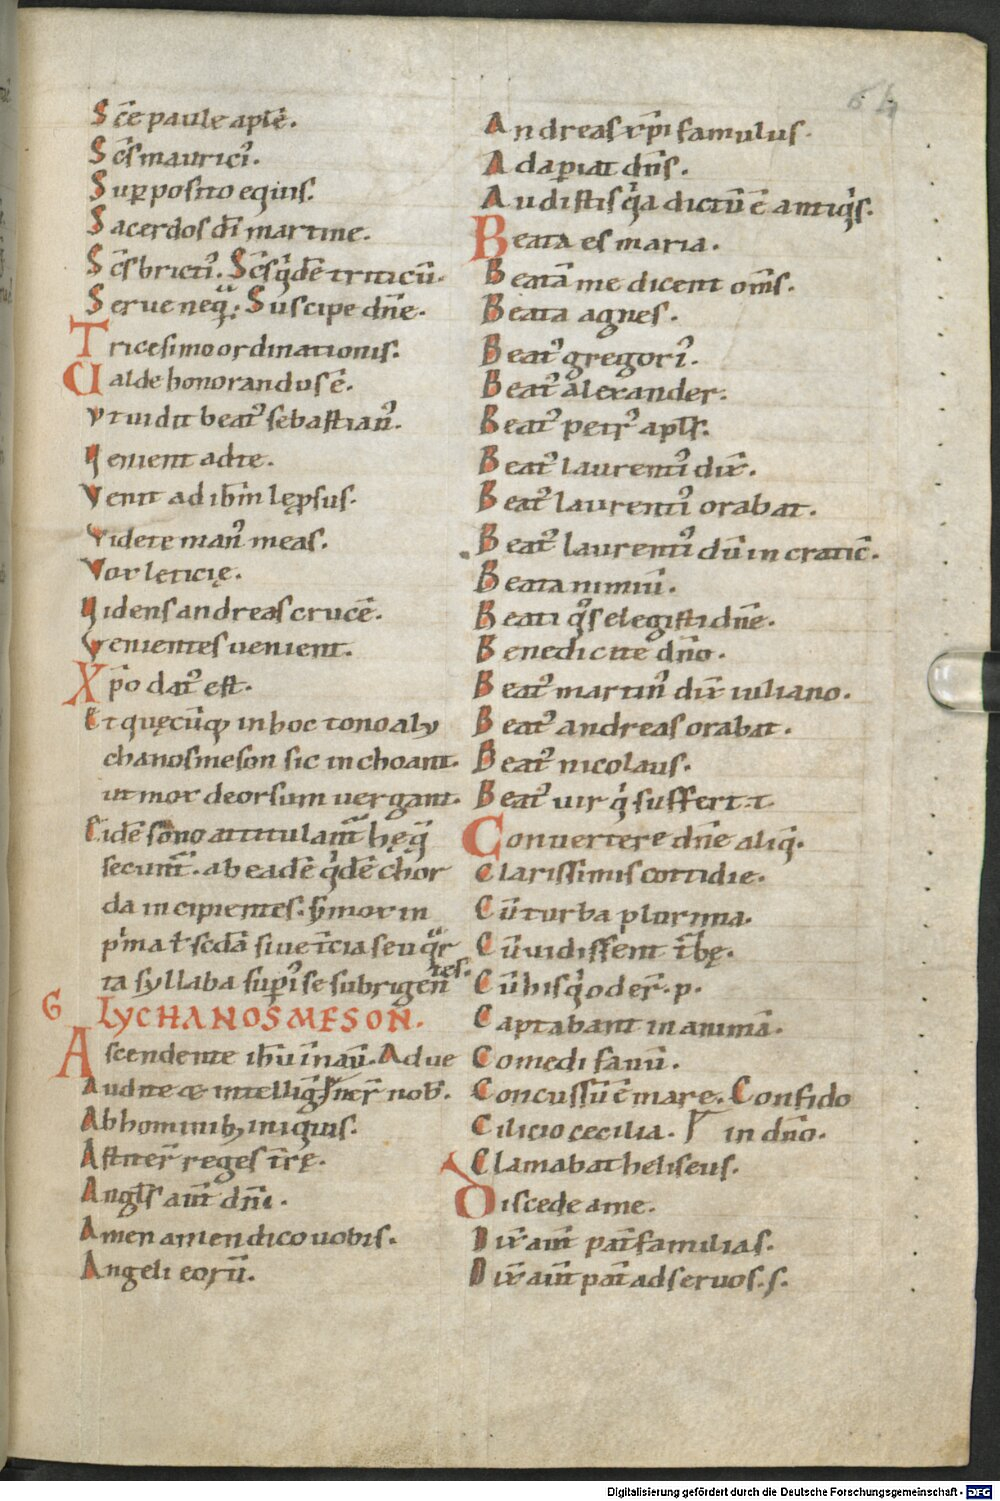 64
Sc̄e paule apl̄e.
Sc̄s mauricı᷒.
Supposito eqius.
Sacerdos dī martine.
Sc̄s brictı᷒. Sc̄s qͥdē triticū.
Serue neq̄; Suscipe dn̄e.
Tricesimo ordinationis.
Ualde honorandus ē.
Vt uidit beat᷒ sebastian᷒.
Venient ad te.
Venit ad ihrl̄m lępsus.
Videte man᷒ meas.
Vox leticię.
Videns andreas crucē.
Venientes uenient.
Xp̄o dat᷒ est.
Et quęcūq; in hoc tono a ly
chanos meson sic inchoant.
ut mox deorsum uergant.
Eidē sono attitulant᷑ hę q̄
secunt᷑. ab eadē qͥdē chor
da incipientes. s; mox in
pͥma ł scdā siue t̄cia seu qͣr
ta syllaba supͥ se subrigen
tes.
G LYCHANOS MESON.
Ascendente ih̄u ī nauī. Adue
Audite & intelligͥte nerͥ nob̄.
Ab hominib; iniquis.
Astiter̄ reges tr̄ę.
Angl̄s aut̄ dn̄i.
Amen amen dico uobis.
Angeli eorū.
Andreas xp̄i famulus.
Adapiat dn̄s.
Audistis qͥa dictū ē antiqͥs.
Beata es maria.
Beatā me dicent om̄s.
Beata agnes.
Beat᷒ gregorı᷒.
Beat᷒ alexander.
Beat᷒ petr᷒ apl̄s.
Beat᷒ laurentı᷒ dix̄.
Beat᷒ laurentı᷒ orabat.
Beat᷒ laurentı᷒ dū in cratic̄.
Beata nimiū.
Beati qͦs elegisti dn̄e.
Benedicite dn̄o.
Beat᷒ martin᷒ dix̄ iuliano.
Beat᷒ andreas orabat.
Beat᷒ nicolaus.
Beat᷒ uir qͥ suffert. t.
Conuertere dn̄e aliq̄.
Clarissimis cottidie.
Cū turba plurima.
Cū uidissent t̄bę.
Cū his qͥ oder̄. p.
Captabant in animā.
Comedi fauū.
Concussū ē mare. Confido
Cilicio cecilia. in dn̄o.
Clamabat heliseus.
Discede a me.
Dix̄ aut̄ pat̄ familias.
Dix̄ aut̄ pat̄ ad seruos. s.
Digitalisierung gefördert durch die Deutsche Forschungsgemeinschaft - DFG